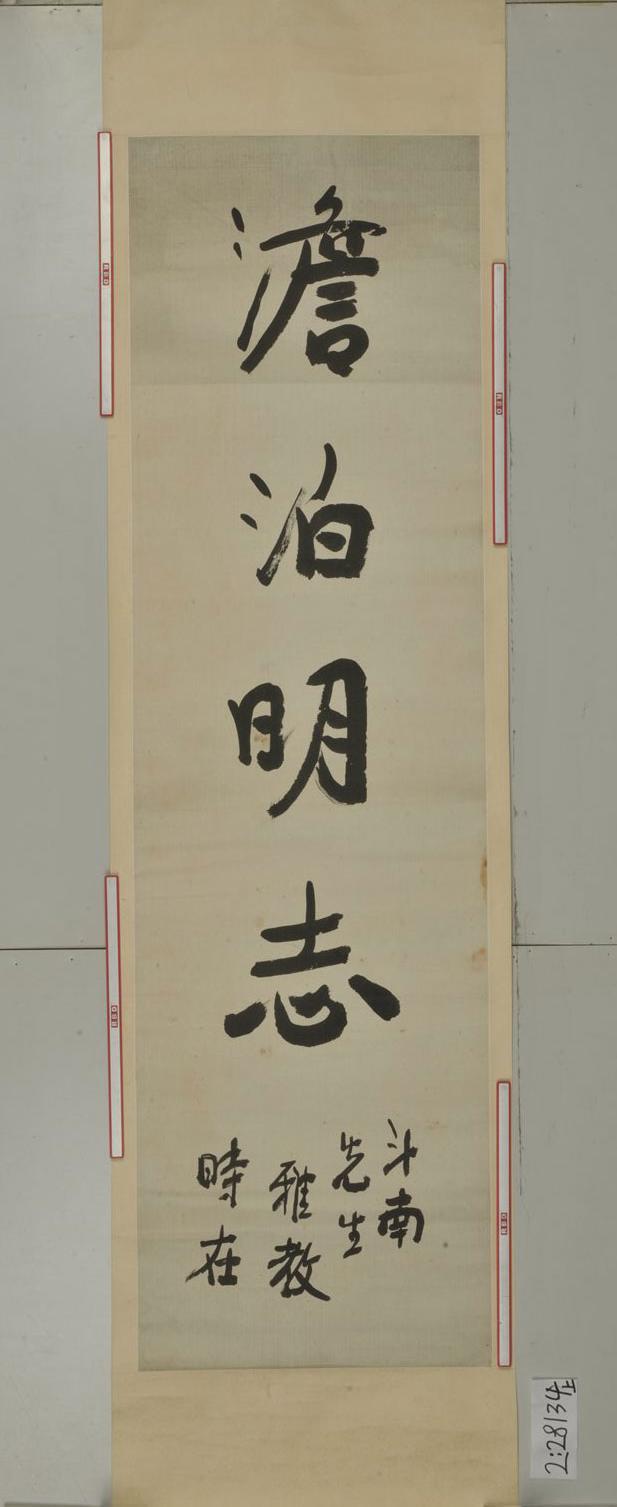 澹泊明志
斗南
先生
雅教
時在
2:28134上